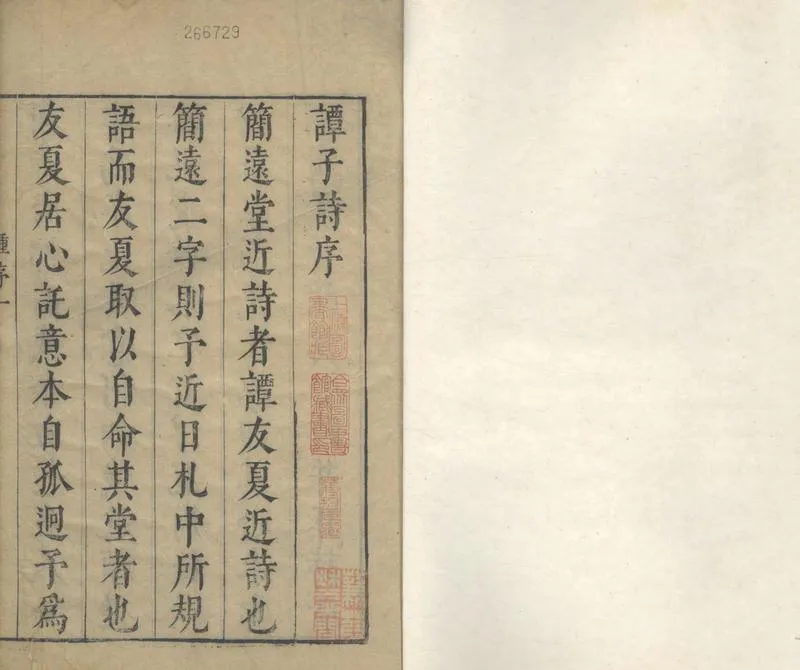 266729
譚子詩序
簡遠堂近詩者譚友夏近詩也
簡遠二字則予近日札中所規
語而友夏取以自命其堂者也
友夏居心託意本自孤迥予爲
序一